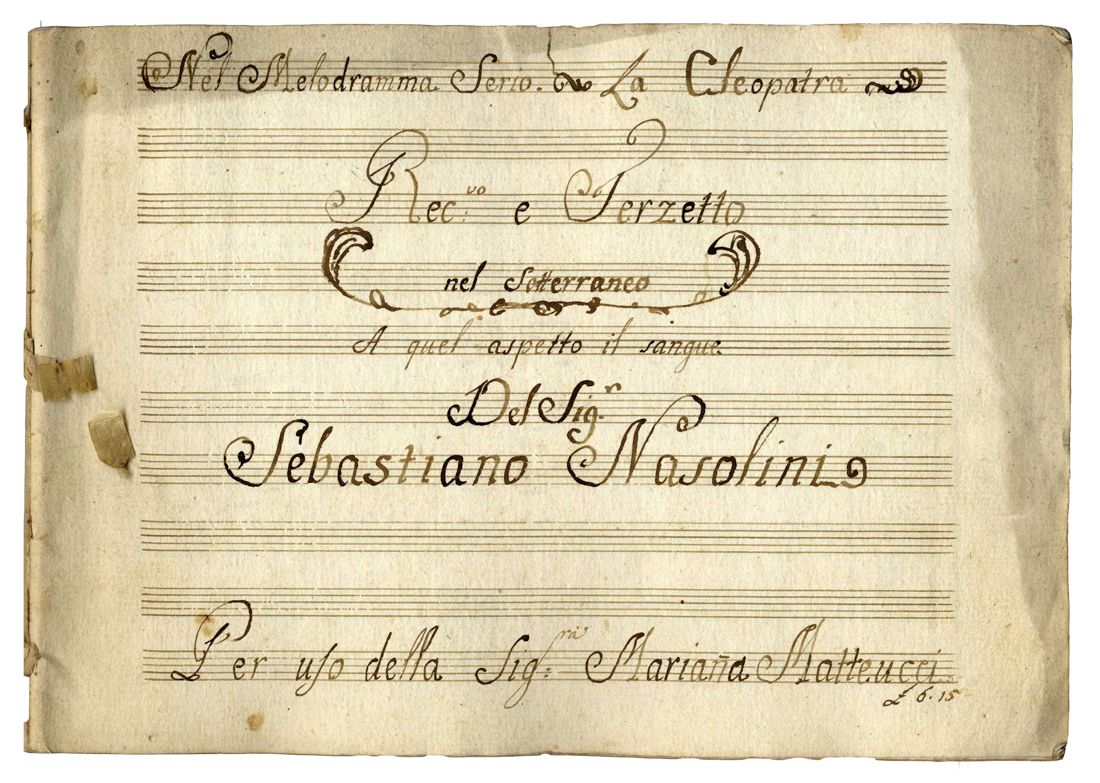 Nel Melodramma Serio. La Cleopatra
Rec:vo e Terzetto
nel Sotterraneo
A quel aspetto il sangue.
Del Sig.r
Sebastiano Nasolini
Per uso della Sig:ra Marian̄a Matteucci.
£ 6.15